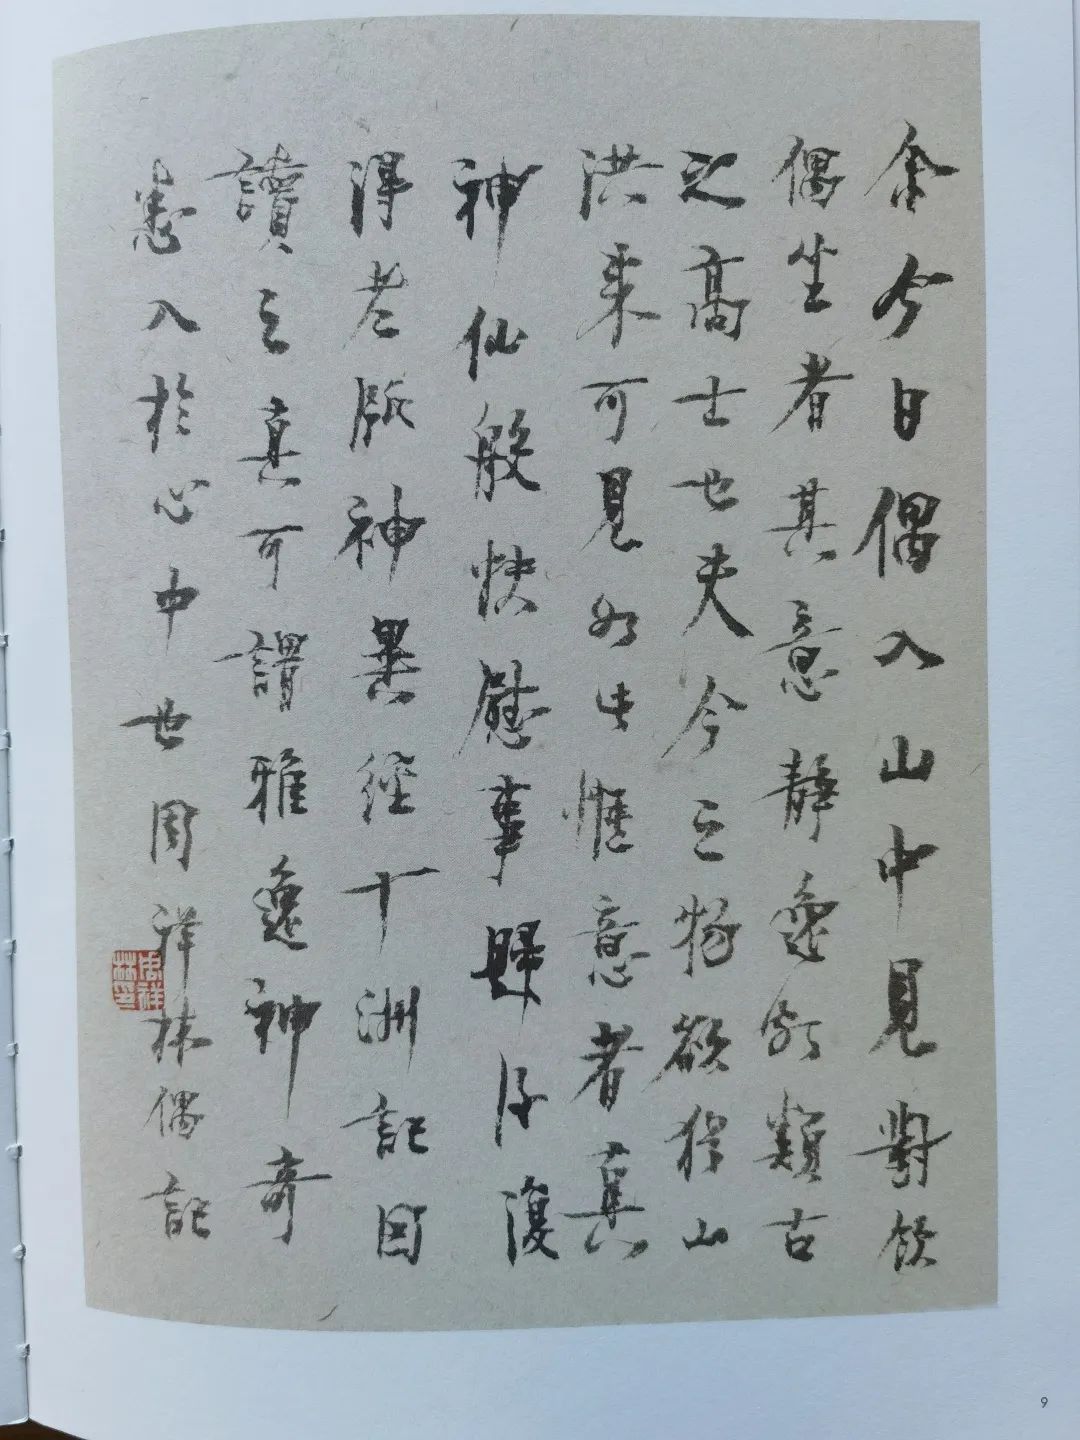 余今日偶入山中見對飲
偶坐者其意靜逸頗類古
之高士也夫今之物欲猶山
洪來可見如此愜意者真
神仙般快慰事歸後復
得老版神異經十洲記因
讀之真可謂雅逸神奇
悉入於心中也周祥林偶記
周祥林印
9